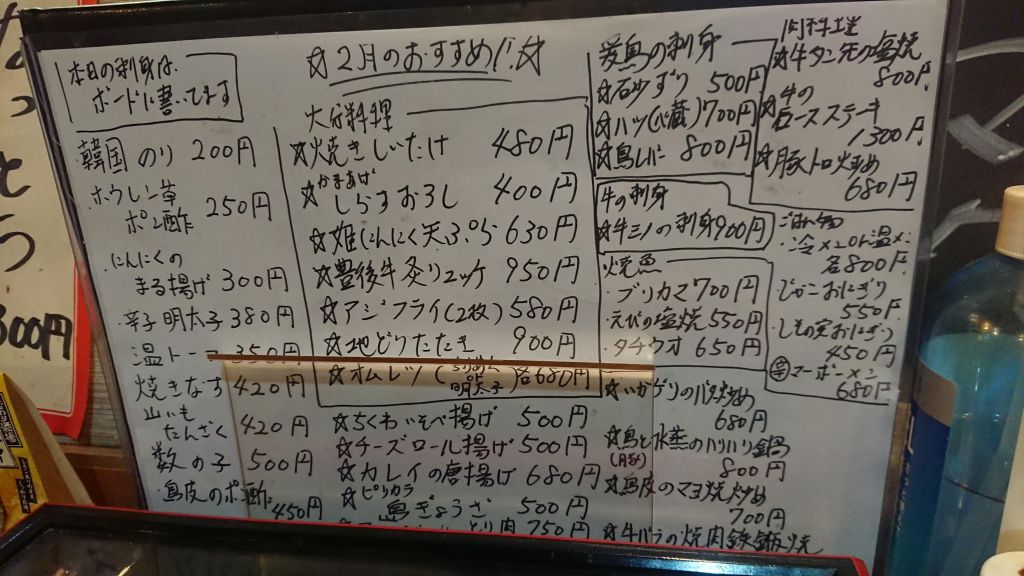 本日の刺身は、
ボードに書いてます
☆2月のおすすめ!!☆
韓国のり 200円
ホウレン草
ポン酢 250円
にんにくの
まる揚げ 300円
・辛子明太子 380円
温トー 350円
焼きなす 420円
山いも
たんざく 420円
数の子 500円
鳥皮のポン酢
450円
大分料理
☆焼きしいたけ 480円
☆かまあげ
しらすおろし 400円
☆姫にんにく天ぷら 630円
☆豊後牛炙りユッケ 950円
☆アジフライ(2枚) 580円
☆地どりたたき 900円
☆オムレツ(明太子)各680円
☆ちくわいそべ揚げ 500円
☆チーズロール揚げ 500円
☆カレイの唐揚げ 680円
☆ピリカラ
鳥ぎょうざ 500円
とり肉 750円
爰鳥の刺身
☆石少ずり 500円
☆ハツ(心蔵) 700円
☆鳥レバー 800円
牛の刺身
☆牛ミノの刺身 900円
焼魚
・ブリカマ 700円
・えびの塩焼 550円
・タチウオ 650円
☆いかゲソのバタ炒め
680円
☆鳥と水菜のハリハリ鍋
800円
☆鳥皮のマヨ焼炒め
700円
☆牛バラの焼肉鉄鈑焼
☆牛タン先の塩焼
800円
☆牛の
ロースステーキ
1300円
☆豚トロ炒め
680円
ごはん物
・冷メンor温メン
各800円
・じゃこおにぎり
550円
・しその実おにぎり
450円
マーボーメン
680円
300円